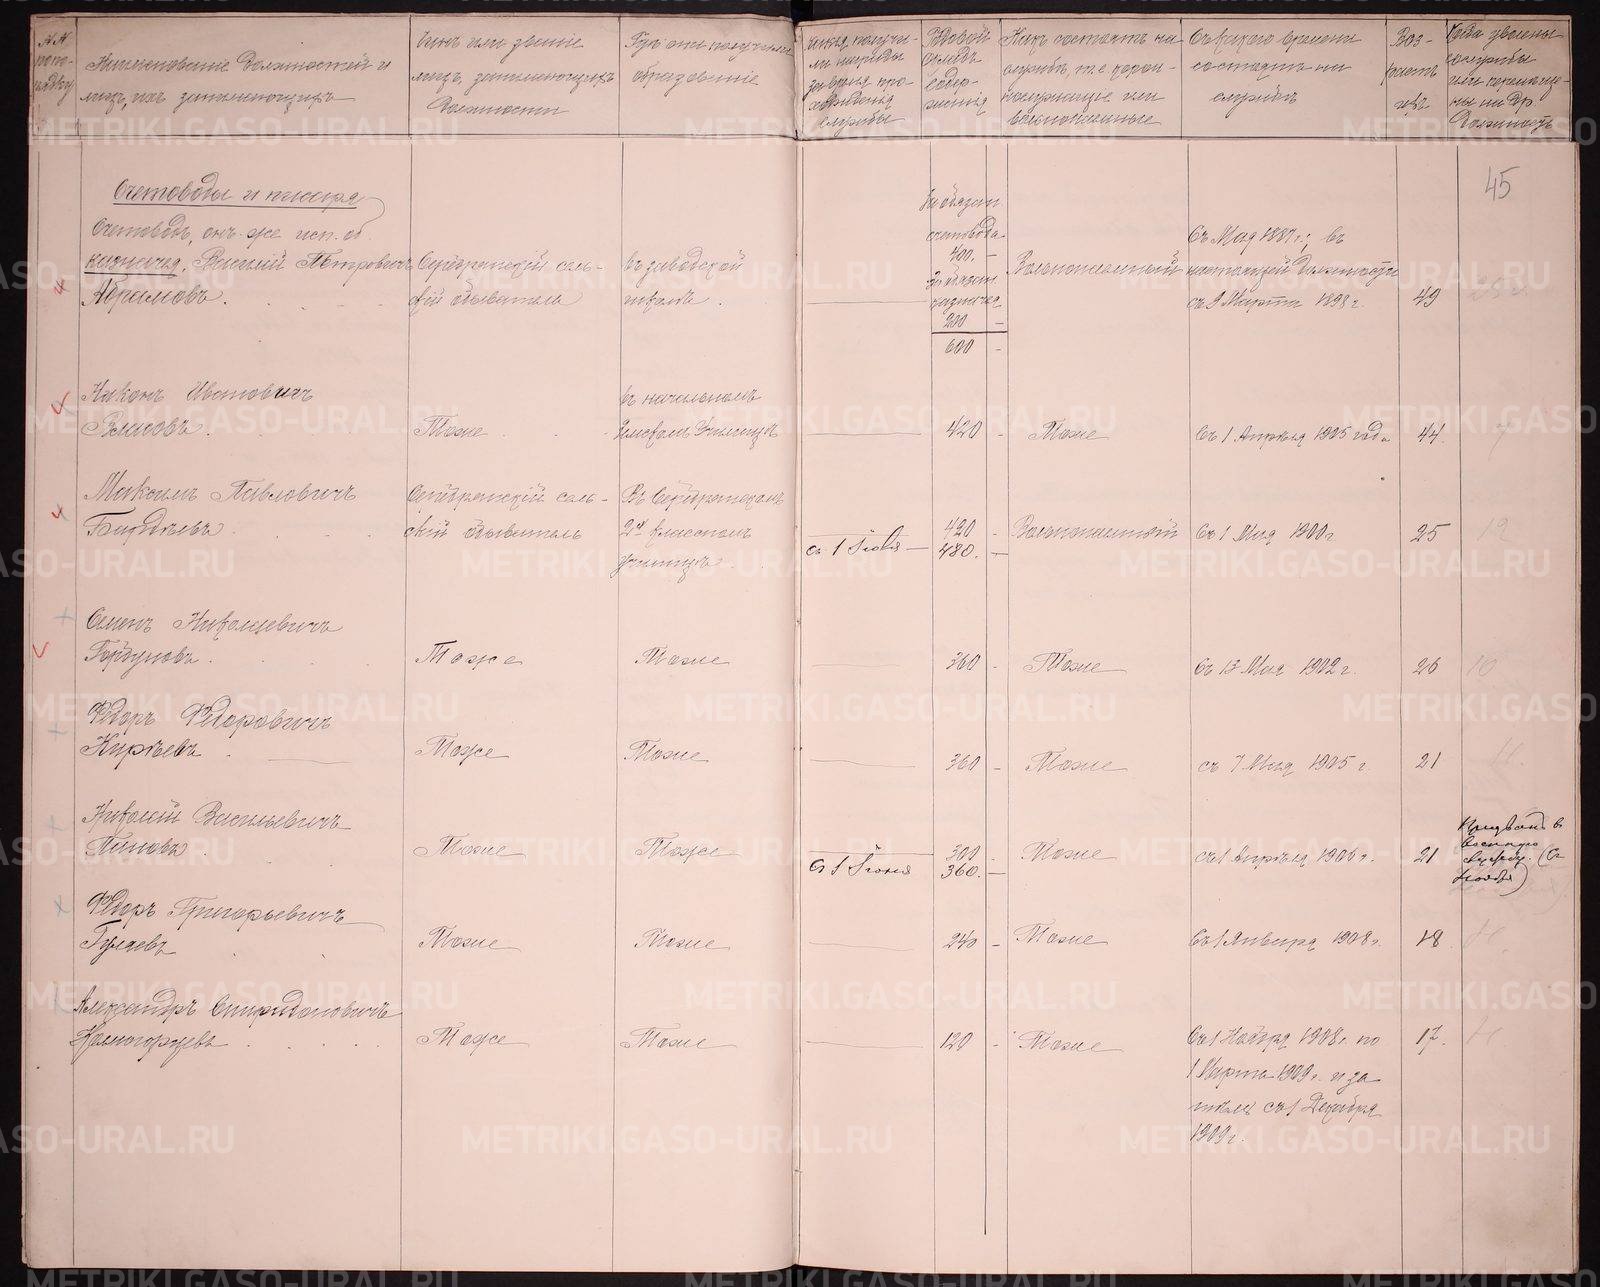 Наименованіе должностей и
лицъ, ихъ занимающихъ
Чинъ или званіе
лицъ, занимающихъ
должности
Гдѣ они получили
образованіе
Какія получи-
ли награды
за время про-
хожденія
службы
Годовой
окладъ
содер-
жанія
Какъ состоятъ на
службѣ, т.е. корон-
нослужащіе или
вольнонаемные
Съ какого времени
состоятъ на
службѣ
Воз-
растъ
ихъ
Когда уволены
службы
или перемеще-
ны на др.
должность
45
Счетоводы и писаря
Счетоводъ, онъ-же исп. об.
казначея, Василій Петровичъ
Абрамовъ.
Серебрянскій сель-
скій обыватель
въ заводской
школѣ.
За обязан.
счетовода
400. -
За обязан.
казначея
200 -
600 -
Вольнонаемный
Съ Мая 1881 г., въ
настоящей должности
съ 9 Марта 1898 г.
49
Никонъ Ивановичъ
Тоже
въ начальномъ
земскомъ училищѣ
420 -
Тоже
Съ 1 Апрѣля 1905 года
44.
7
Максимъ Павловичъ
Серебрянскій сель-
скій обыватель
Въ Серебрянскомъ
2хъ классномъ
училищѣ.
с 1 Июня —
420 -
480. —
Вольнонаемный
Съ 1 Мая 1900 г
25
12
Семенъ Николаевичъ
Горбуновъ.
Тоже
Тоже
360 -
Тоже
Съ 13 Мая 1902 г.
26
10
Федоръ Федоровичъ
Тоже
Тоже
360 -
Тоже
съ 7 Мая 1905 г
21
Николай Васильевичъ
Пановъ
Тоже
Тоже
С 1 Июня
300 -
360. —
Тоже
съ 1 Апрѣля 1906 г.
21
Призванъ в
военную
службу. (С
ноября)
Федоръ Григорьевичъ
Гуляевъ
Тоже
Тоже
240 -
Тоже
Съ 1 Января 1908 г.
18
Александръ Спиридоновичъ
Комогорцевъ
Тоже
Тоже
120 -
Тоже
Съ 1 Ноября 1908 г. по
1 Марта 1909 г. и за
тѣмъ съ 1 Декабря
1909 г.
17.
METRIKI.GASO-URAL.RU